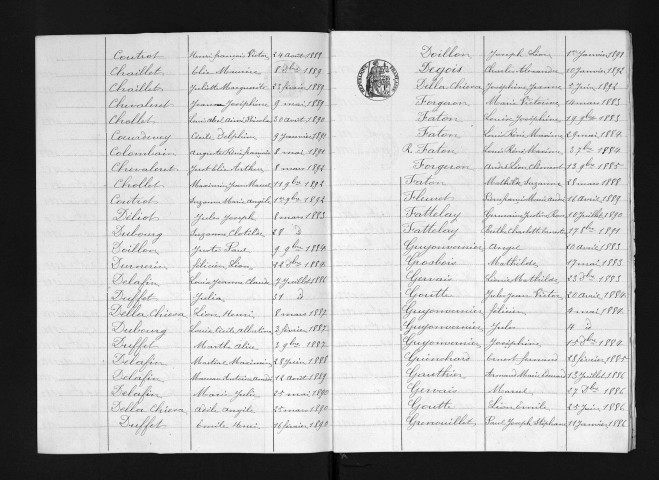 Controt Henri françois Victor 24 août 1889
Chaillet Elie Maurice 8 Xbre 1889
Chaillet Juliette Marguerite 23 février 1889
Chevalerot Jeanne Joséphine 9 mai 1889
Chollet Louis Abel Aimé Nicolas 30 août 1890
Coeurdevey Cécile Delphine 9 Janvier 1891
Colombain Auguste René francois 8 mai 1891
Chevalerot Just Elie Arthur 8 mars 1892
Chollet Maximin Jean Marcel 11 9bre 1892
Controt Suzanne Marie Angèle 1er 9bre 1892
Déliot Jules Joseph 8 mars 1883
Dubourg Suzanne Clotilde 28 d
Doillon Juste Paul 9 9bre 1884
Dumérier Félicien Léon 22 Xbre 1884
Delafin Louis Jeanne Claude 7 Juillet 1886
Duffet Julia 31 d
Della Chiesa Léon Henri 8 mars 1887
Dubourg Louise Cécile Albertine 3 février 1887
Duffet Marthe Alice 3 9bre 1887
Delafin Maxime Maximin 28 Juin 1888
Delafin 12 août 1889
Delafin Marie Julie 25 mai 1890
Della Chiesa Adèle Angèle 25 mars 1890
Duffet Emile Henri 16 février 1890
Doillon Joseph Léon 1er Janvier 1891
Degois Charles Alexandre 10 Janvier 1892
Della Chiesa Joséphine Jeanne 5 Juin 1892
Forgeron Marie Victorine 14 mars 1883
Faton Louise Joséphine 19 9bre 1883
Faton Louis René Maxime 29 mai 1884
R. Faton Louis René Maxime 3 Xbre 1884
Forgeron André Léon Clément 13 9bre 1885
Faton Mathilde Suzanne 28 mars 1888
Fleurot Marie Aimée 11 août 1889
Fattelay Germaine Justine Rose 10 Juillet 1890
Fattelay Berthe Charlotte 17 8bre 1891
Guyonvernier Ange 10 avril 1883
Grosbois Mathilde 17 mai 1883
Gervais Louise Mathilde 23 Xbre 1883
Goutte Jules Jean Victor 20 avril 1884
Guyonvernier Félicien 4 mai d
Guyonvernier Jules 4 d
Guyonvernier Joséphine 15 Xbre 1884
Guinchard Ernest fernand 28 février 1885
Gauthier Armand Marie Edmond 13 Juillet 1886
Gervais Marcel 27 Xbre 1886
Goutte Léon Emile 25 Juin 1886
Grenouillet Paul Joseph Stéphane 11 Janvier 1886